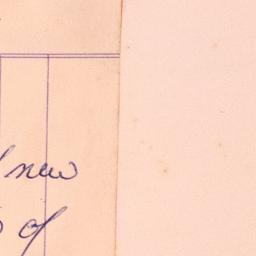 new
of